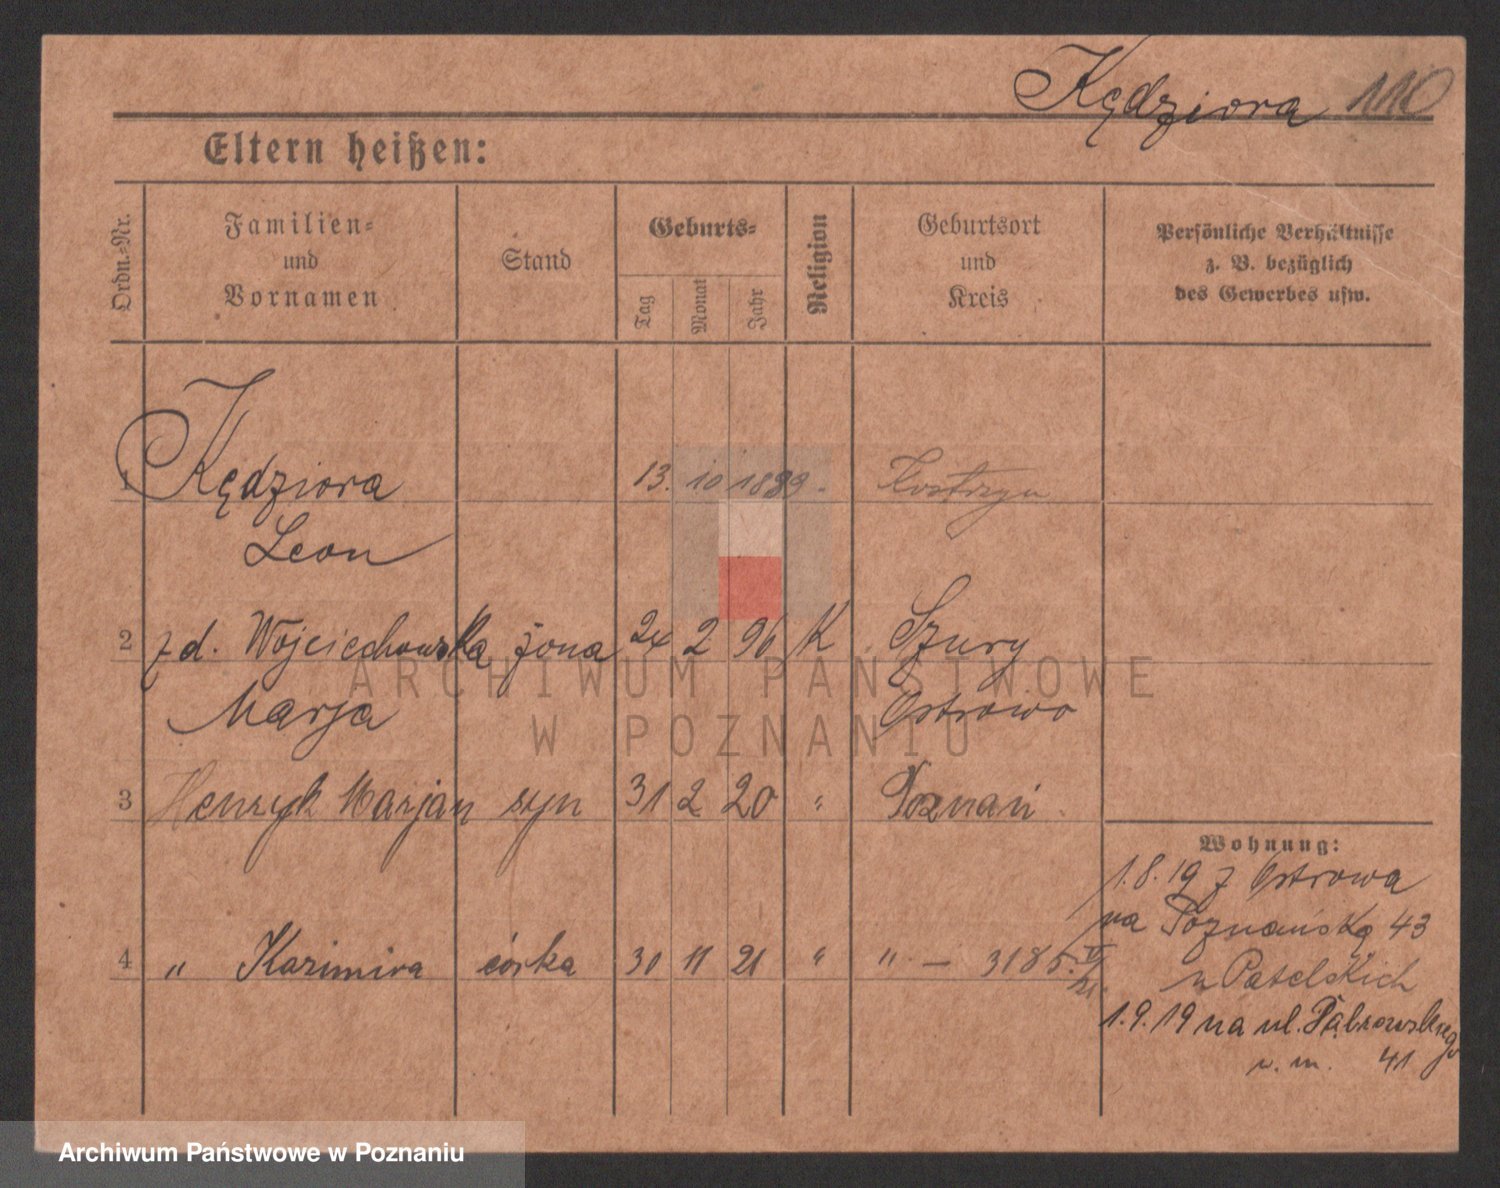 Kędziora 110
Eltern heißen:
Ordn.-Nr.
Familien-
und
Vornamen
Stand
Geburts-
Tag
Monat
Jahr
Religion
Geburtsort
und
Kreis
Persönliche Verhältnisse
z. B. bezüglich
des Gewerbes usw.
1 Kędziora 13. 10 1889. Kostrzyn
Leon
2 z d. Wojciechowska żona 24 2 96 K Szury
Marja Ostrowo
3 Henryk Marjan syn 31 2 20 " Poznań
4 " Kazimira córka 30 11 21 " " — 3185
Wohnung:
1.8.19 z Ostrowa
na Poznańską 43
u Patelskich
1.9.19 na ul. Dąbrowskiego
41
ARCHIWUM PAŃSTWOWE
W POZNANIU
Archiwum Państwowe w Poznaniu